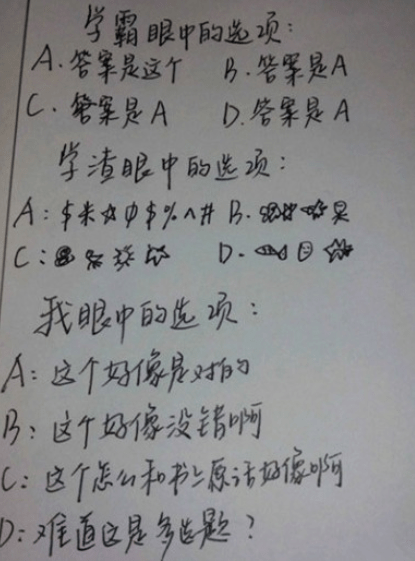 学霸眼中的选项:
A.答案是这个 B.答案是A
C.答案是A D.答案是A
学渣眼中的选项:
A:$米☆φ$%^# B.
C: D.
我眼中的选项:
A:这个好像是对的
B:这个好像没错啊
C:这个怎么和书上原话好像啊
D:难道这是多选题?